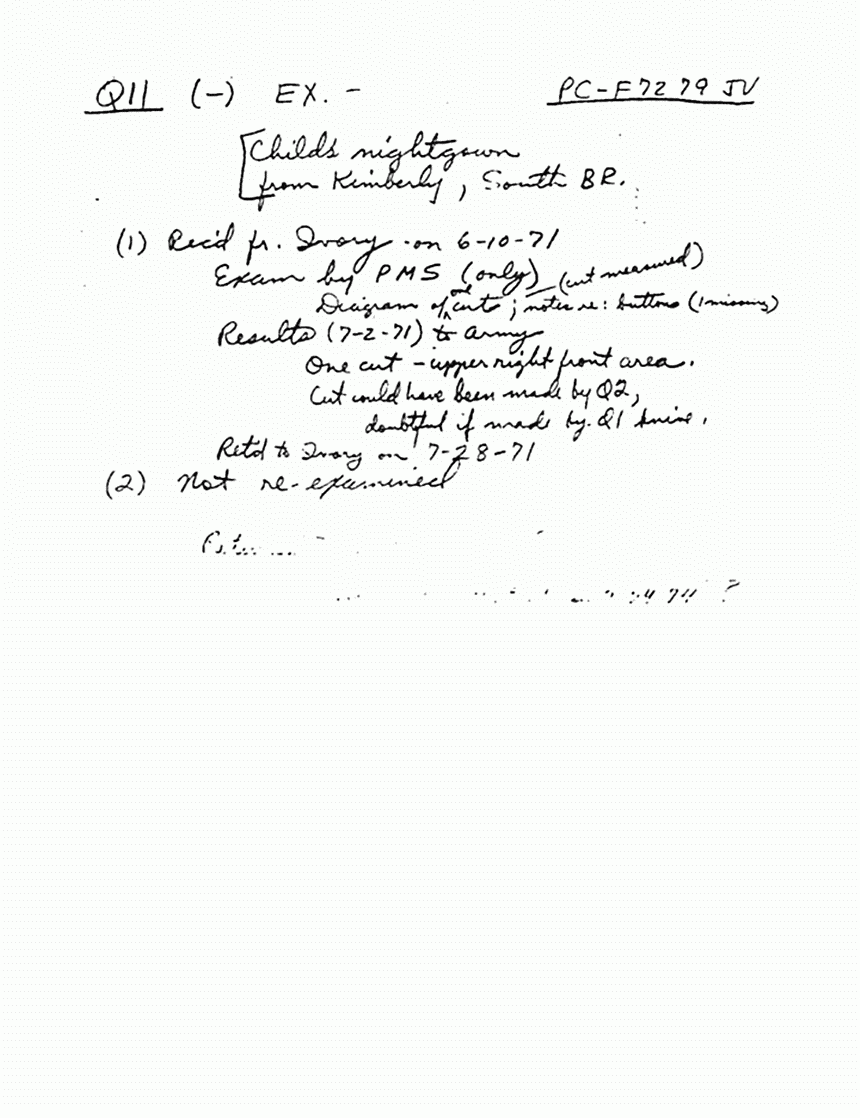 Q11 (-) EX. - PC-F7279 JV
[Childs nightgown
from Kimberly, South BR.
(1) Rec'd fr. Ivory on 6-10-71
Exam by PMS (only) (cut measured)
Diagram of one cut; notes re: buttons (1 missing)
Results (7-2-71) to army
One cut - upper right front area.
Cut could have been made by Q2,
doubtful if made by Q1 knife.
Ret'd to Ivory on 7-28-71
(2) Not re-examined